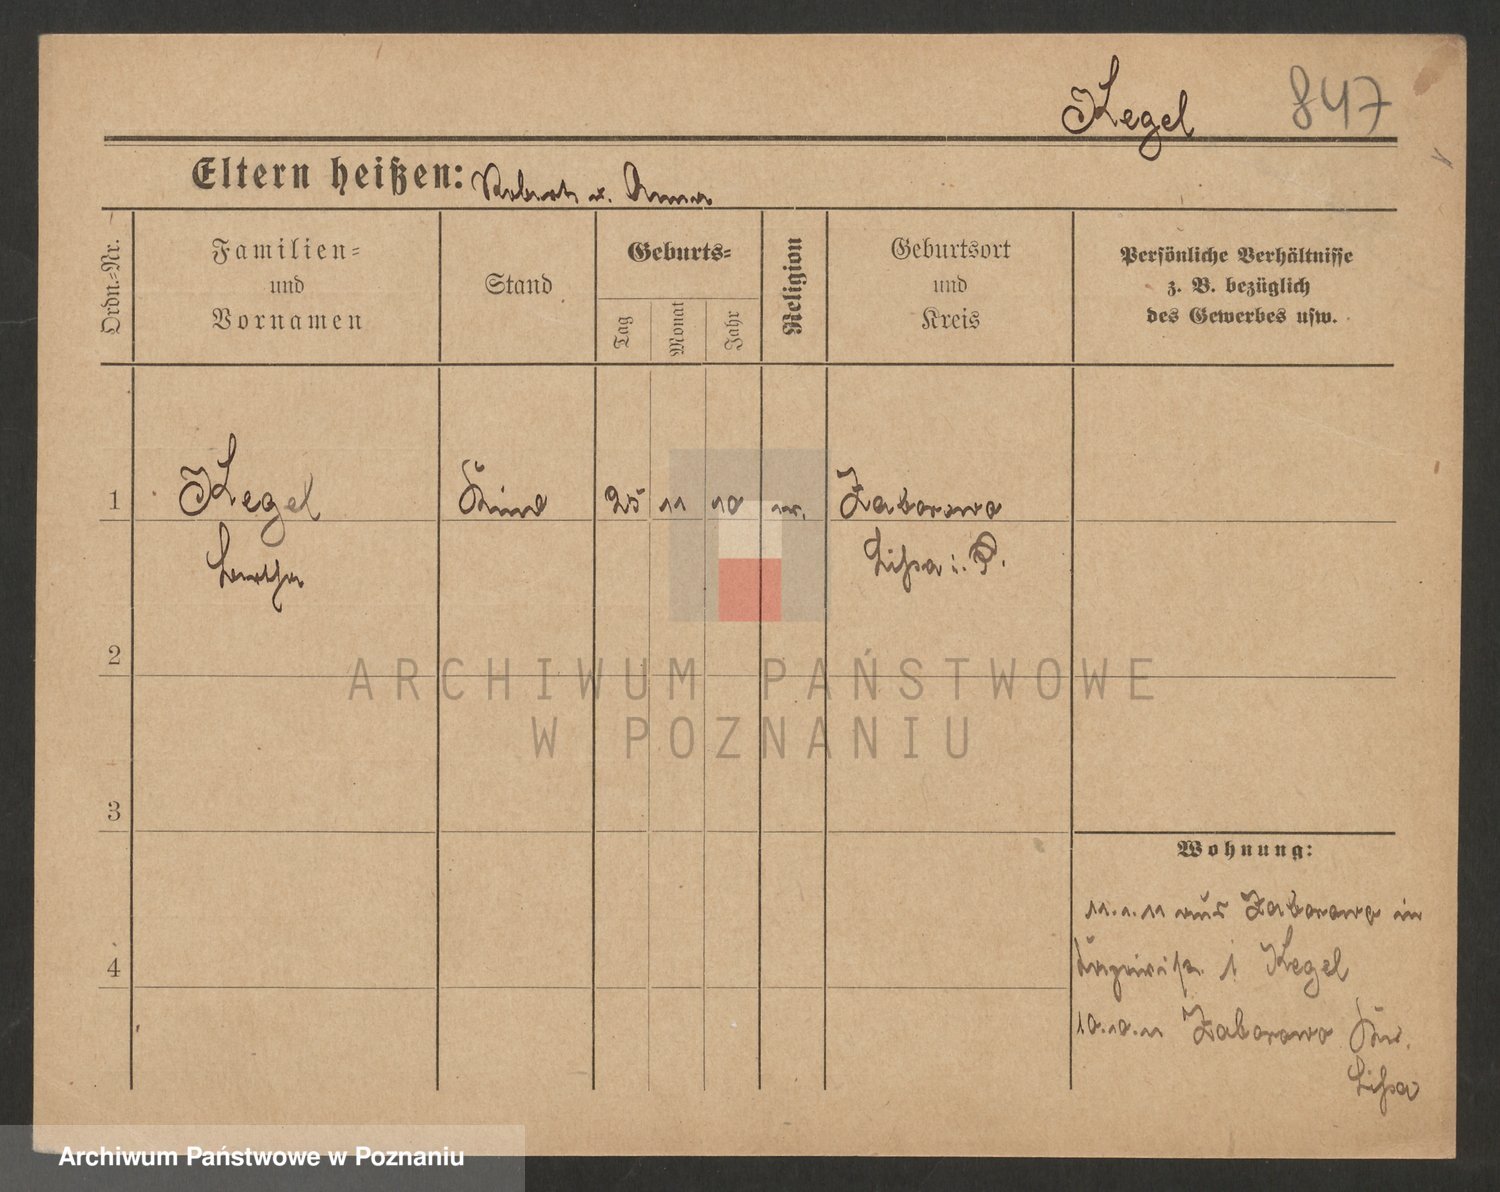 Kegel 847
Eltern heißen: Robert u. Anna
Ordn.=Nr.
Familien=
und
Vornamen
Stand
Geburts=
Tag
Monat
Jahr
Religion
Geburtsort
und
Kreis
Persönliche Verhältnisse
z. B. bezüglich
des Gewerbes usw.
1 Kegel Kind 25 11 10 Zaborowo
Lissa i. P.
2
3
4
Wohnung:
11.1.11 aus Zaborowo in
Kegel
10.10.11 Zaborowo Kr.
Lissa
ARCHIWUM PAŃSTWOWE
W POZNANIU
Archiwum Państwowe w Poznaniu